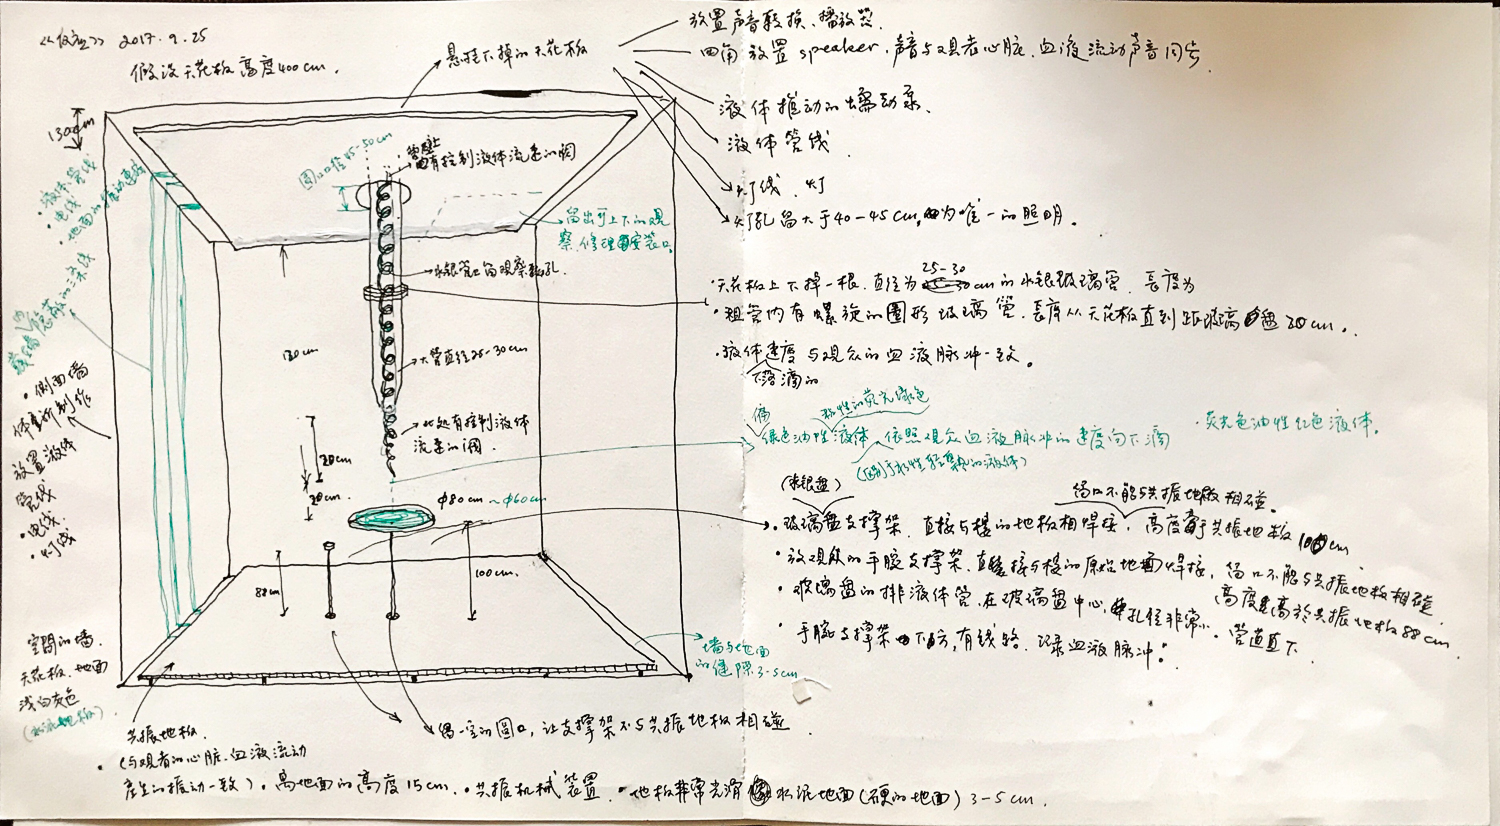 2017.9.25
假设天花板高度400cm.
悬挂下掉的天花板
放置声音转换、播放器.
四角放置speaker,声音与观者心脏、血液流动声音同步
液体推动的蠕动泵.
液体管线
灯线、灯
灯孔留大于40-45cm,为唯一的照明。
130cm
圆口径45-50cm
有控制液体流速的阀
留出可上下的观
察、修理安装口.
水银管口留观察孔.
大管直径25-30cm
130cm
此处有控制液体
流速的阀.
20cm
20cm
φ80cm~φ60cm
88cm
100cm.
液体管线
电线
侧面墙
体重新制作
放置液体
管线
电线.
灯线.
空间的墙.
天花板、地面
浅白灰色
25-30
天花板上下掉一根,直径为 cm的水银玻璃管,长度为
粗管内有螺旋的圆形玻璃管,长度从天花板直到距玻璃盘20cm.
液体速度与观众的血液脉冲一致。
下落滴的
偏
绿色油性液体,依照观众血液脉冲的速度向下滴
荧光色油性红色液体.
(水银盘)
留口不能与共振地板相碰.
玻璃盘支撑架,直接与楼的地板相焊接,高度高于共振地板100cm
放观众的手腕支撑架,直接与楼的原始地面焊接,留口不能与共振地板相碰.
高度高於共振地板88cm
玻璃盘的排液体管,在玻璃盘中心,孔径非常小.管道直下.
手腕支撑架下方,有线路.记录血液脉冲.
墙与地面
的缝隙3-5cm
留一定的圆口,让支撑架不与共振地板相碰
共振地板.
(与观者的心脏、血液流动
产生的振动一致).离地面的高度15cm.·共振机械装置.·地板非常光滑 水泥地面(硬的地面)3-5cm.